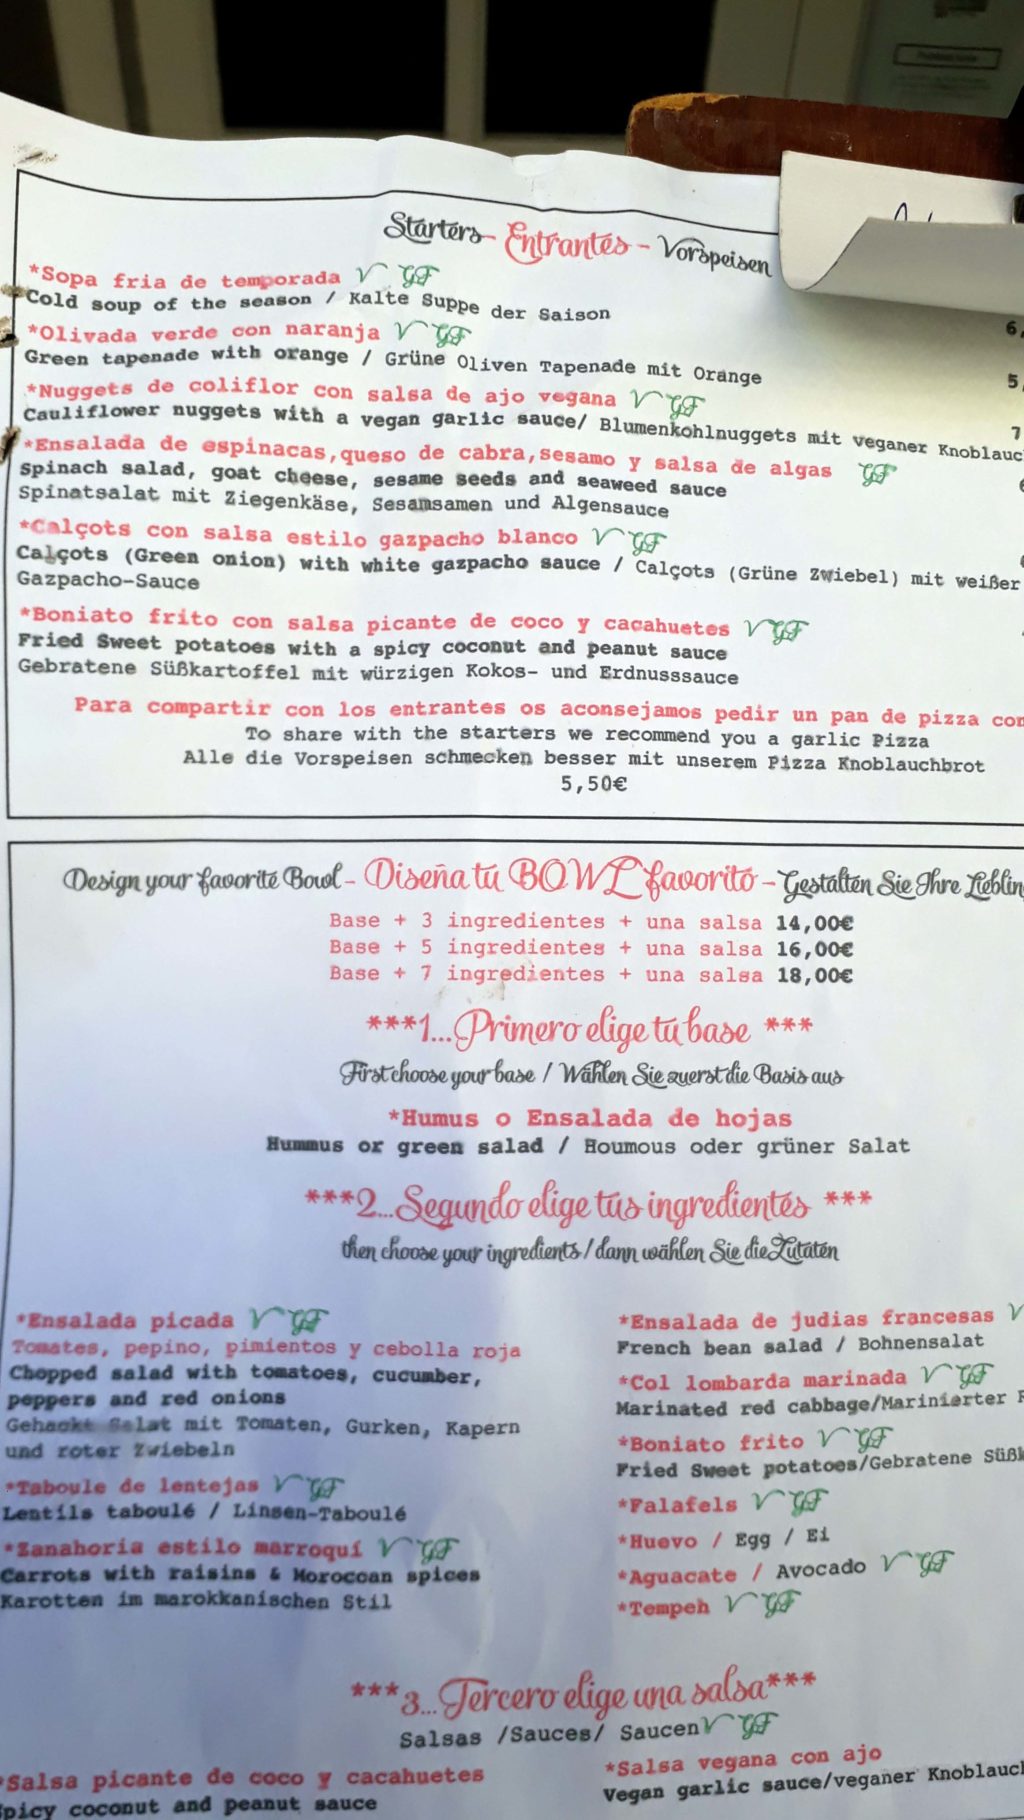 Starters- Entrantes - Vorspeisen
*Sopa fria de temporada V GF
Cold soup of the season / Kalte Suppe der Saison
6,
*Olivada verde con naranja V GF
Green tapenade with orange / Grüne Oliven Tapenade mit Orange
5,
*Nuggets de coliflor con salsa de ajo vegana V GF
Cauliflower nuggets with a vegan garlic sauce/ Blumenkohlnuggets mit veganer Knoblauc
7
*Ensalada de espinacas,queso de cabra,sesamo y salsa de algas GF
Spinach salad, goat cheese, sesame seeds and seaweed sauce
Spinatsalat mit Ziegenkäse, Sesamsamen und Algensauce
*Calçots con salsa estilo gazpacho blanco V GF
Calçots (Green onion) with white gazpacho sauce / Calçots (Grüne Zwiebel) mit weißer
Gazpacho-Sauce
*Boniato frito con salsa picante de coco y cacahuetes V GF
Fried Sweet potatoes with a spicy coconut and peanut sauce
Gebratene Süßkartoffel mit würzigen Kokos- und Erdnusssauce
Para compartir con los entrantes os aconsejamos pedir un pan de pizza con
To share with the starters we recommend you a garlic Pizza
Alle die Vorspeisen schmecken besser mit unserem Pizza Knoblauchbrot
5,50€
Design your favorite Bowl - Diseña tu BOWL favorito - Gestalten Sie Ihre Lieblin
Base + 3 ingredientes + una salsa 14,00€
Base + 5 ingredientes + una salsa 16,00€
Base + 7 ingredientes + una salsa 18,00€
***1...Primero elige tu base ***
First choose your base / Wählen Sie zuerst die Basis aus
*Humus o Ensalada de hojas
Hummus or green salad / Houmous oder grüner Salat
***2...Segundo elige tus ingredientes ***
then choose your ingredients / dann wählen Sie die Zutaten
*Ensalada picada V GF
Tomates, pepino, pimientos y cebolla roja
Chopped salad with tomatoes, cucumber,
peppers and red onions
Gehackt Salat mit Tomaten, Gurken, Kapern
und roter Zwiebeln
*Taboule de lentejas V GF
Lentils taboulé / Linsen-Taboulé
*Zanahoria estilo marroquí V GF
Carrots with raisins & Moroccan spices
Karotten im marokkanischen Stil
*Ensalada de judias francesas V
French bean salad / Bohnensalat
*Col lombarda marinada V GF
Marinated red cabbage/Marinierter R
*Boniato frito V GF
Fried Sweet potatoes/Gebratene Süßk
*Falafels V GF
*Huevo / Egg / Ei
*Aguacate / Avocado V GF
*Tempeh V GF
***3...Tercero elige una salsa***
Salsas /Sauces/ Saucen V GF
*Salsa picante de coco y cacahuetes
Spicy coconut and peanut sauce
*Salsa vegana con ajo
Vegan garlic sauce/veganer Knoblauch